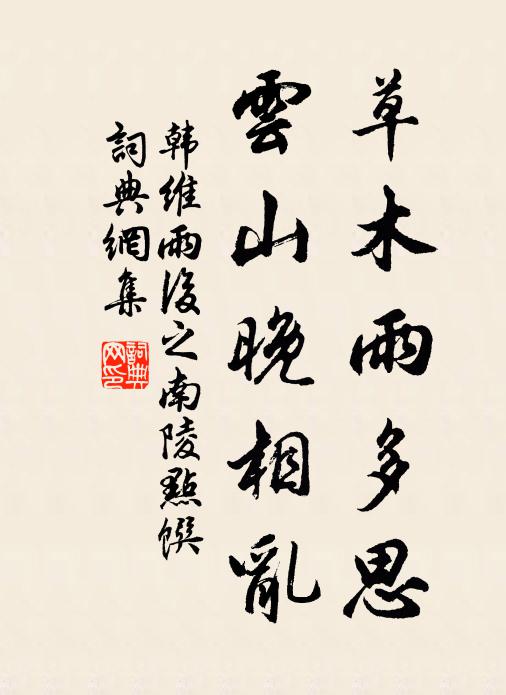 草木雨多思
雲山晚相亂
韩維雨後之南陵點馔
詞典網集
詞典网印